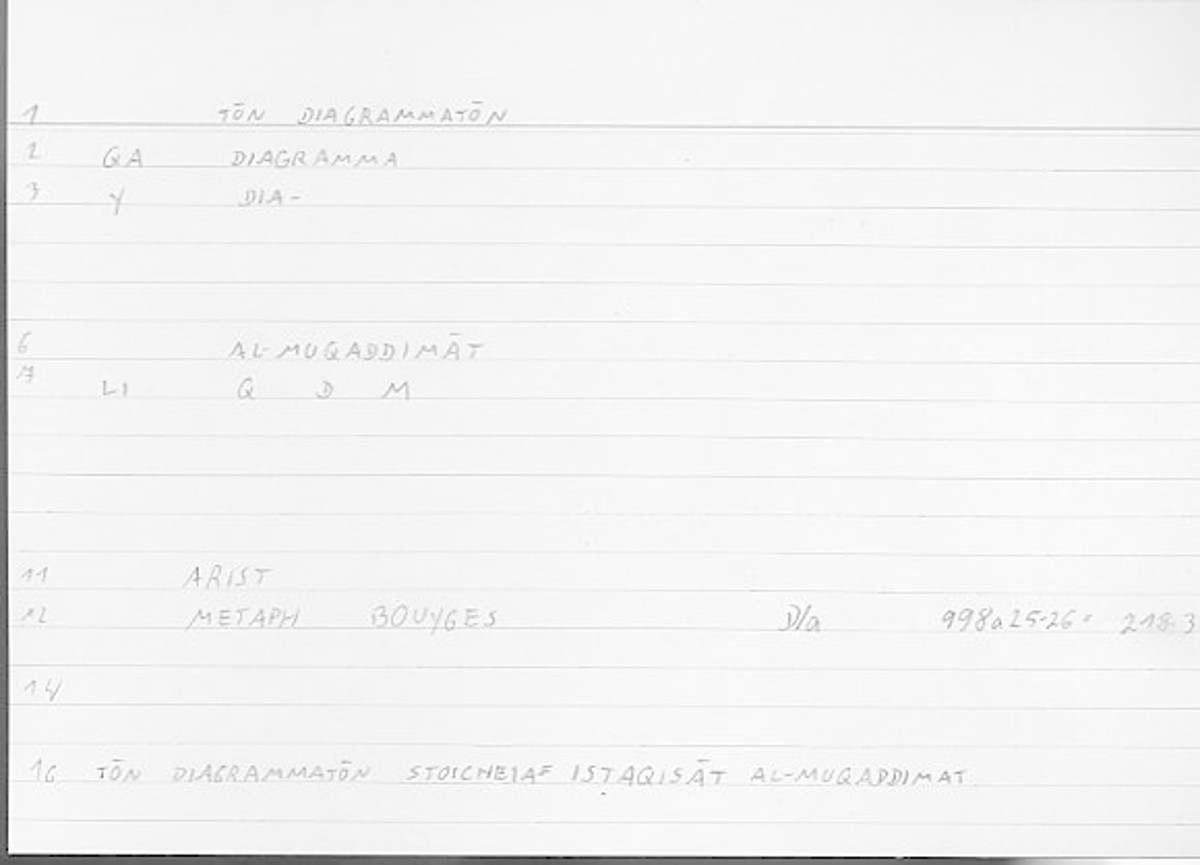 1 TŌN DIAGRAMMATŌN
2 QA DIAGRAMMA
3 Y DIA-
6 AL-MUQADDIMĀT
7 LI Q D M
11 ARIST
12 METAPH BOUYGES D/a 998a25-26= 218.3
14
16 TŌN DIAGRAMMATŌN ISṬAQISĀT AL-MUQADDIMAT